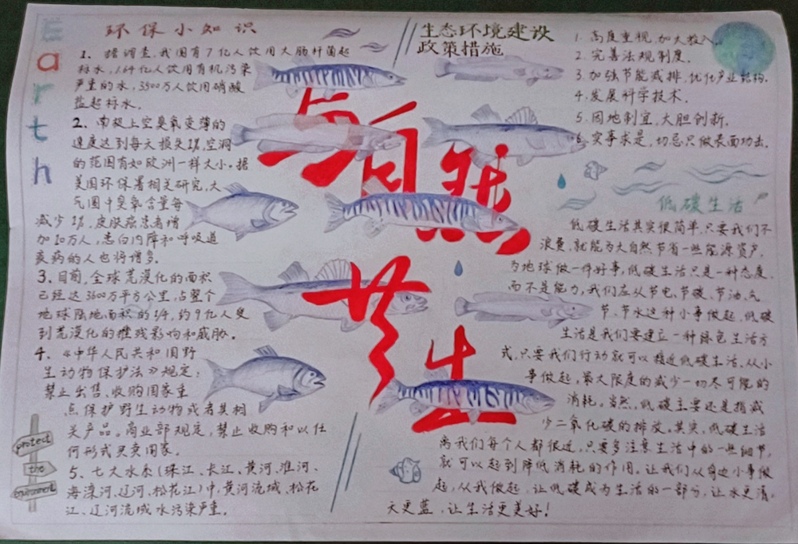 Earth
环保小知识
1、据调查,我国有7亿人饮用大肠杆菌超
标水,1.64亿人饮用有机污染
严重的水,3500万人饮用硝酸
盐超标水。
2、南极上空臭氧变薄的
速度达到每天损失2%,空洞
的范围有如欧洲一样大。据
美国环保署相关研究,大
气圈中臭氧含量每
减少1%,皮肤癌患者增
加10万人,患白内障和呼吸道
疾病的人也将增多。
3、目前,全球荒漠化的面积
已经达3600万平方公里,占整个
地球陆地面积的1/4,约9亿人受
到荒漠化的
影响和威胁。
4、《中华人民共和国野
生动物保护法》规定:
禁止出售、收购国家重
点保护野生动物或者其相
关产品。商业部规定,禁止收购和以任
何形式买卖国家。
5、七大水系(珠江、长江、黄河、淮河、
海滦河、辽河、松花江)中,黄河流域、松花
江、辽河流域水污染严重。
protect
the
与自然
共生
生态环境建设
政策措施
1. 高度重视,加大投入。
2. 完善法规制度。
3. 加强节能减排,优化产业结构。
4. 发展科学技术。
5. 因地制宜,大胆创新。
6. 实事求是,切忌只做表面功夫。
低碳生活
低碳生活其实很简单,只要我们不
浪费,就能为大自然节省一些能源资产,
为地球做一件好事,低碳生活只是一种态度,
而不是能力,我们应从节电、节碳、节油、气
节、节水这种小事做起,低碳
生活是我们要建立一种绿色生活方
式,只要我们行动就可以接近低碳生活。从小
事做起,最大限度的减少一切尽可能的
消耗。当然,低碳主要还是指减
少二氧化碳的排放。其实,低碳生活
离我们每个人都很近,只要多注意生活中的一些细节,
就可以起到降低消耗的作用。让我们从身边小事做
起,从我做起,让低碳成为生活的一部分,让水更清,
天更蓝,让生活更美好!